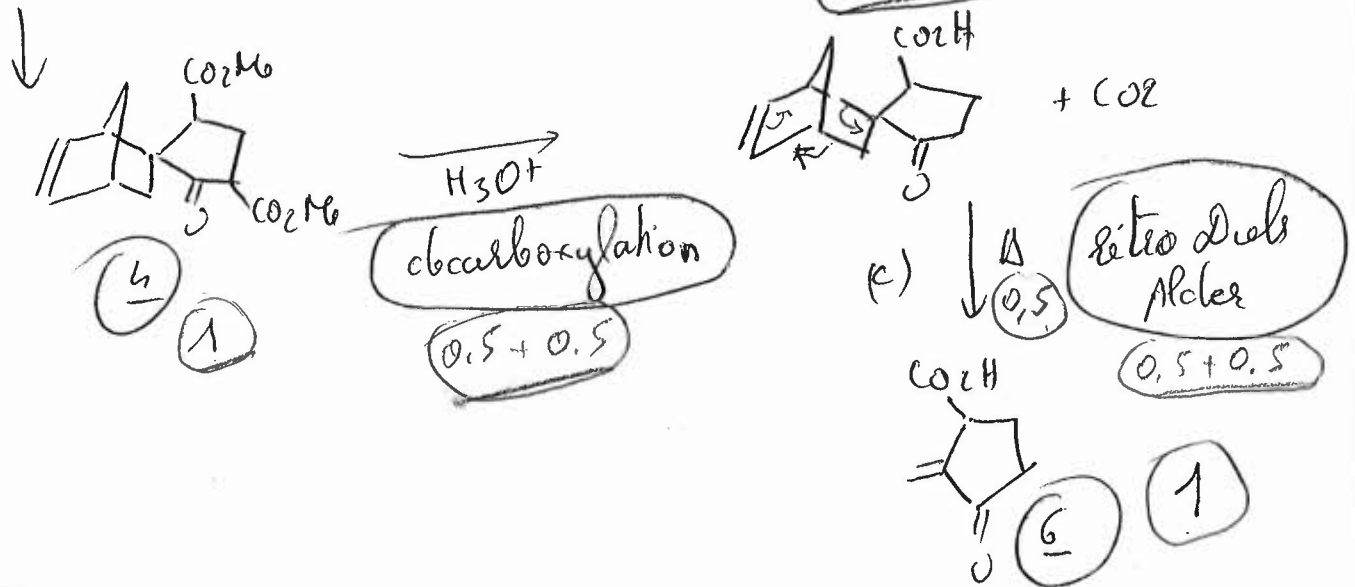 CO2Me
O
CO2Me
4
1
H3O+
decarboxylation
0,5 + 0.5
CO2H
O
+ CO2
c)
Δ
0,5
rétro Diels
Alder
0,5 + 0.5
CO2H
O
6
1